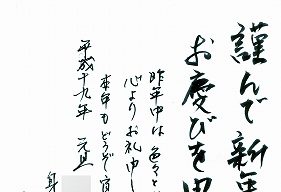 謹んで新年
お慶びを申
昨年中は色々と
心よりお礼申し
本年もどうぞ宜
平成十九年 元旦